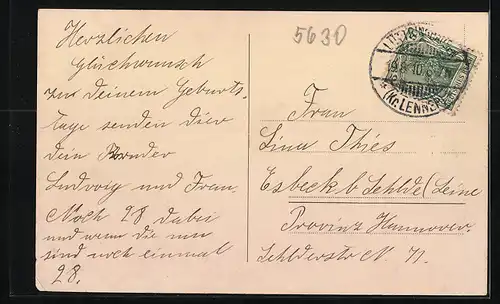 Herzlichen
Glückwunsch
zu Deinem Geburts-
tage senden dier
dein Bruder
Ludwig und Frau.
Noch 28 dabei
und wenn die um
sind noch einmal
28.
5630
(Kr. LENNEP)
Frau
Lina Thies
Esbeck b Sehlde (Leine
Provinz Hannover.
Sehlderstr N. 71.